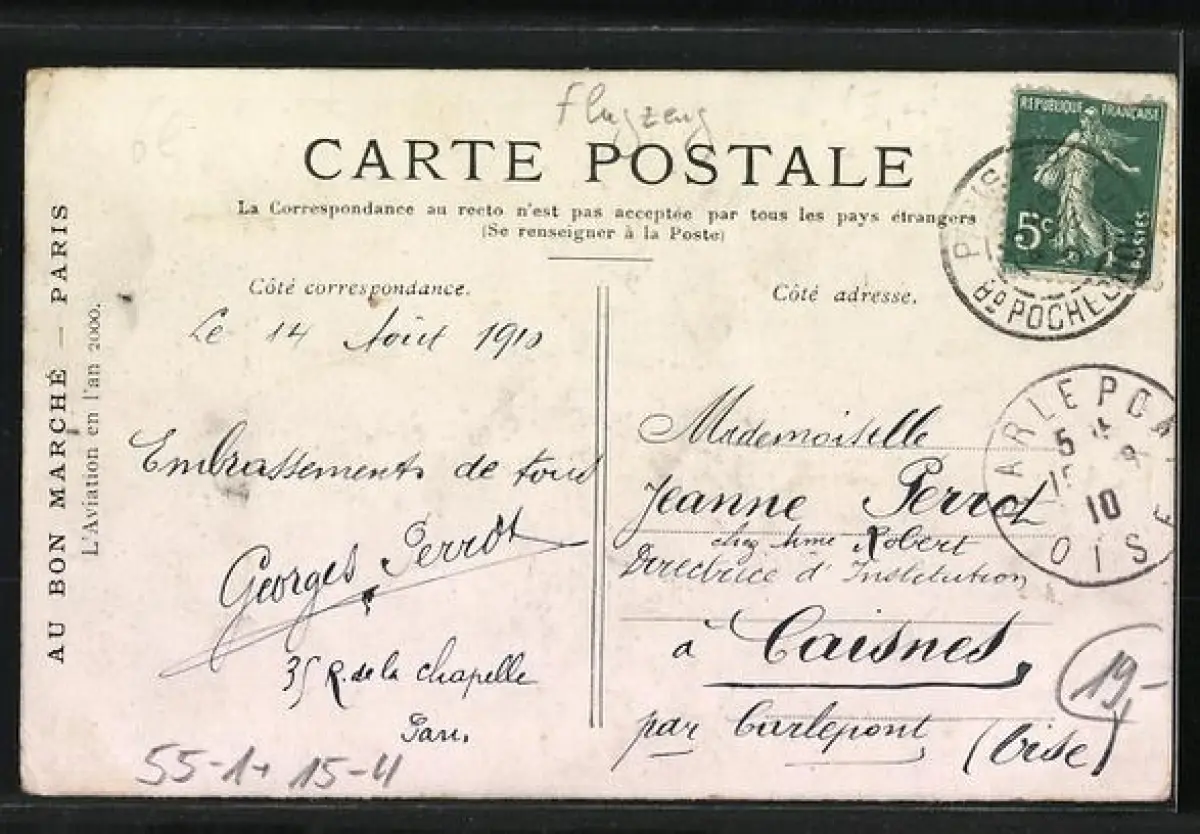 Flugzeug
CARTE POSTALE
La Correspondance au recto n'est pas acceptée par tous les pays étrangers
(Se renseigner à la Poste)
AU BON MARCHÉ — PARIS
L'Aviation en l'an 2000.
Côté correspondance.
Le 14 Août 1910
Embrassements de tous
Georges Perrot
35 R. de la Chapelle
Paris
55-1+ 15-4
Côté adresse.
Mademoiselle
Jeanne Perrot
chez Mme Robert
Directrice d'Institution
à Caisnes,
par Carlepont (Oise)
19,-
REPUBLIQUE FRANÇAISE
5c
POSTES
PARIS
Bd
ARLEPON
5
10
OISE